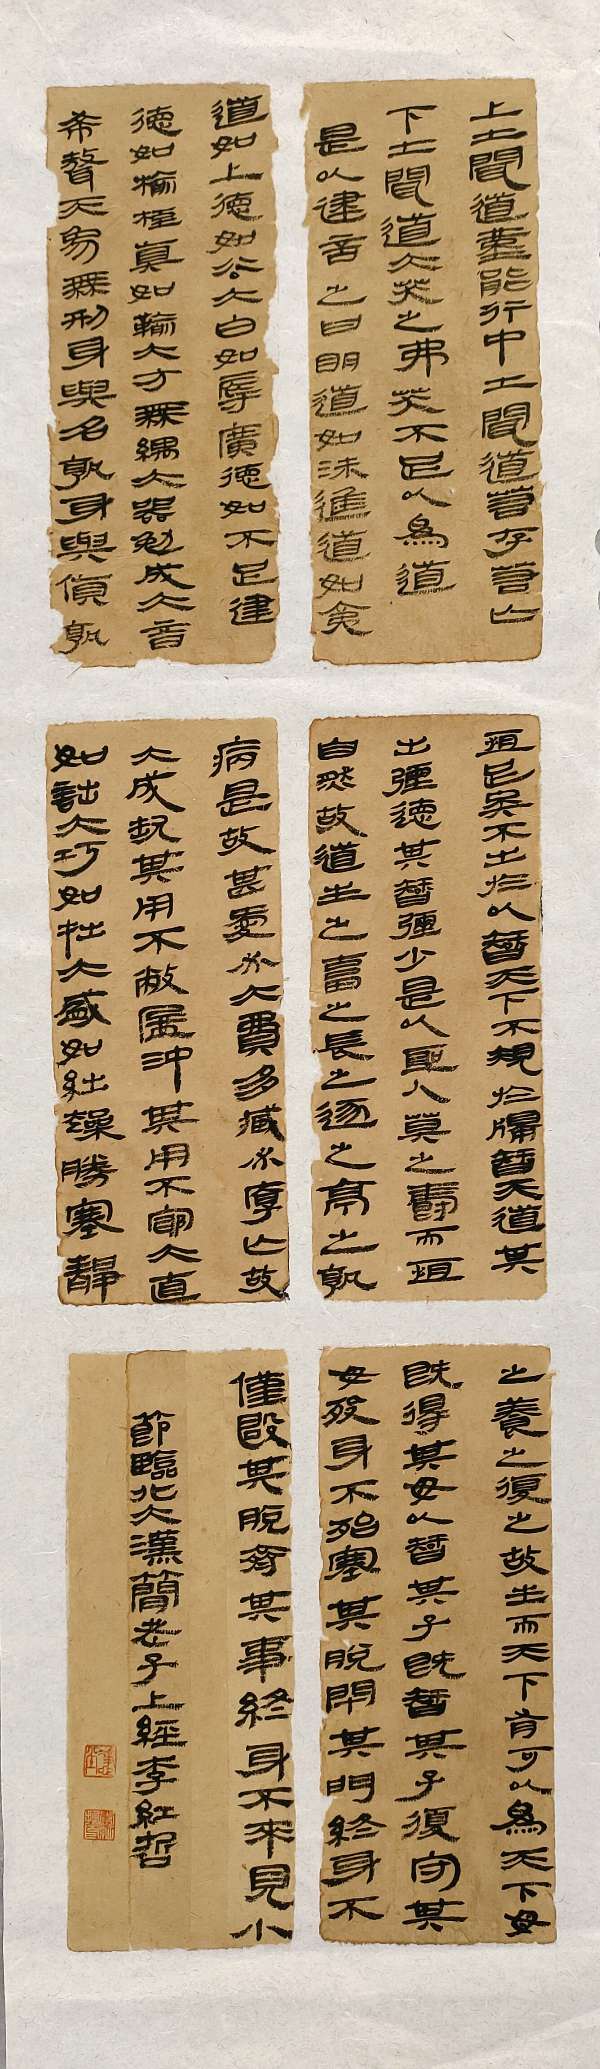 上士聞道堇能行中士聞道若存若亡
下士聞道大笑之弗笑不足以為道
是以建言之曰明道如沬進道如
道如上德如谷大白如辱廣德如不足建
德如榆桎真如輸大方無隅大器勉成大音
希聲天象無刑身與名孰身與貨孰
恒足矣不出於以智天下不規於牖智天道其
出彌德其智彌少是以聖人莫之爵而恒
自然故道生之畜之長之逐之亭之孰
病是故甚愛必大費多藏必厚亡故
大成缺其用不敝盈沖其用不窮大直
如詘大巧如拙大盛如絀躁勝寒靜
之養之復之故生而天下有可以為天下母
既得其母以智其子既智其子復守其
母歿身不殆塞其脫閉其門終身不
僅啟其脫齊其事終身不來見小
節臨北大漢簡老子上經李紅哲